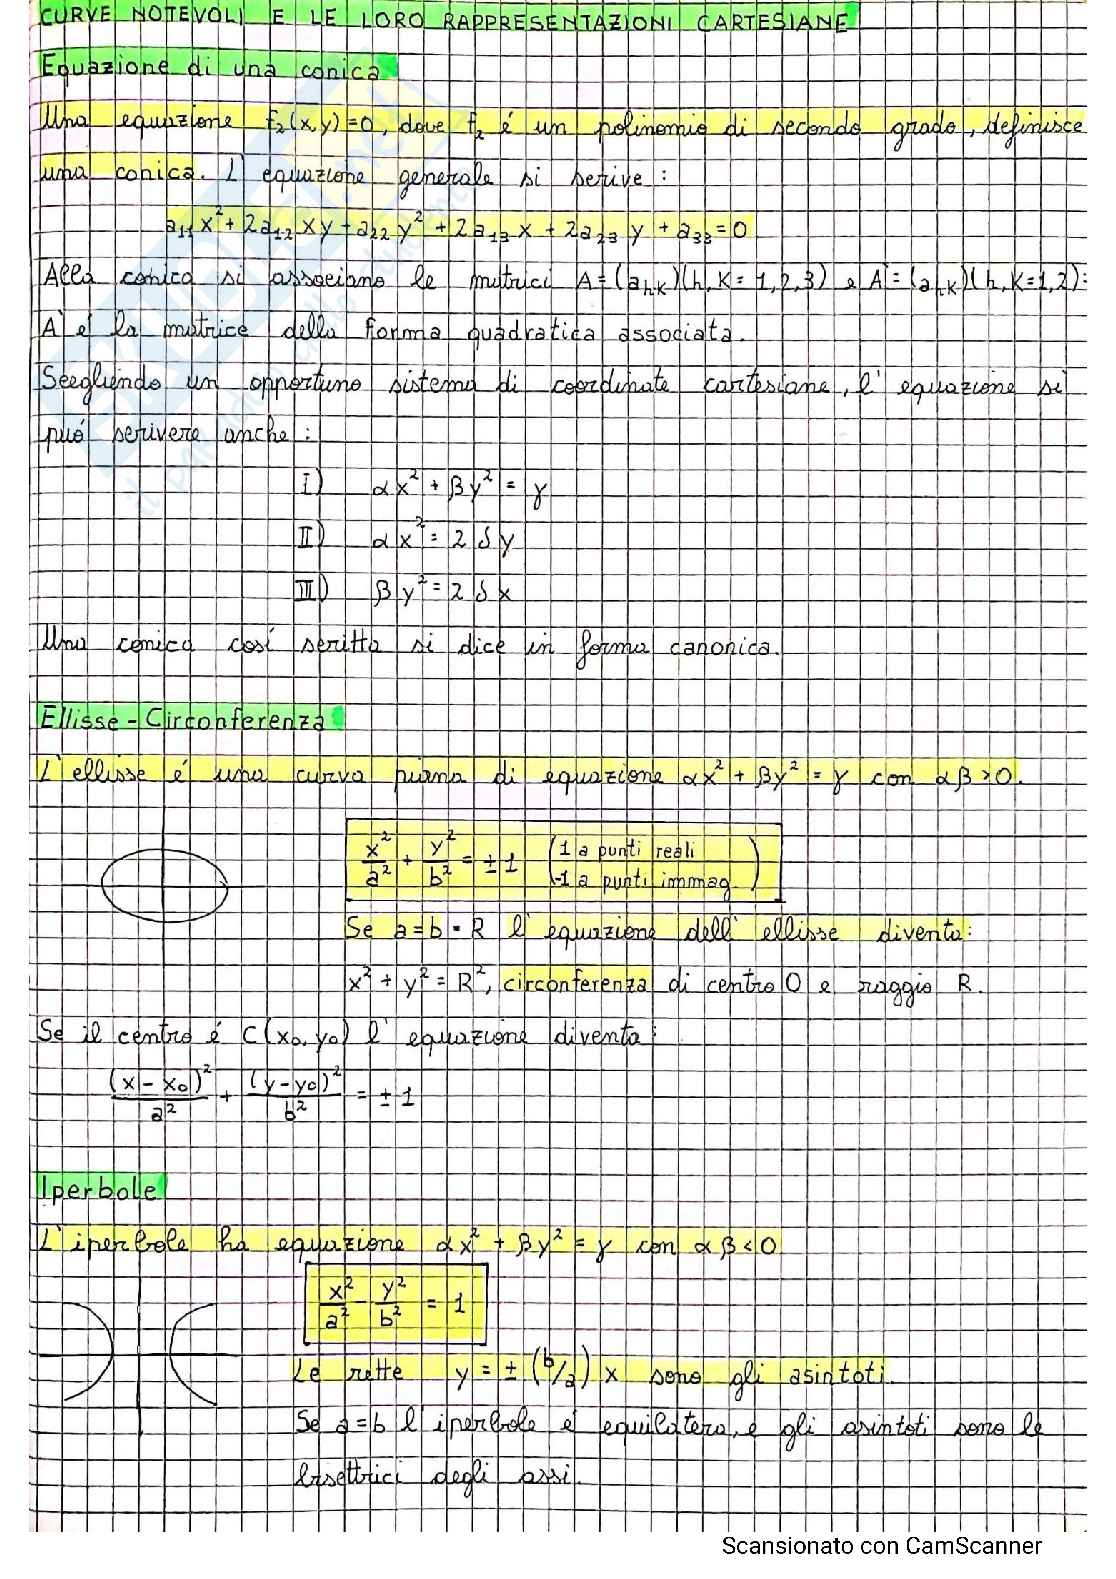 CURVE NOTEVOLI E LE LORO RAPPRESENTAZIONI CARTESIANE
Equazione di una conica
Una equazione f₂(x,y)=0, dove f₂ é un polinomio di secondo grado, definisce
una conica. L'equazione generale si scrive:
a₁₁x² + 2a₁₂xy + a₂₂y² + 2a₁₃x + 2a₂₃y + a₃₃ = 0
Alla conica si associano le matrici A=(aₕₖ)(h,k=1,2,3) e A'=(aₕₖ)(h,k=1,2):
A' é la matrice della forma quadratica associata.
Scegliendo un opportuno sistema di coordinate cartesiane, l'equazione si
può scrivere anche:
I) αx² + βy² = γ
II) αx² = 2δy
III) βy² = 2δx
Una conica così scritta si dice in forma canonica.
Ellisse - Circonferenza
L'ellisse é una curva piana di equazione αx² + βy² = γ con αβ>0.
x²/a² + y²/b² = ±1 (1 a punti reali
-1 a punti immag.)
Se a=b=R l'equazione dell'ellisse diventa:
x² + y² = R², circonferenza di centro O e raggio R.
Se il centro é C(x₀,y₀) l'equazione diventa:
(x-x₀)²/a² + (y-y₀)²/b² = ±1
Iperbole
L'iperbole ha equazione αx² + βy² = γ con αβ<0
x²/a² - y²/b² = 1
Le rette y = ±(b/a)x sono gli asintoti.
Se a=b l'iperbole é equilatera, e gli asintoti sono le
bisettrici degli assi.
Scansionato con CamScanner